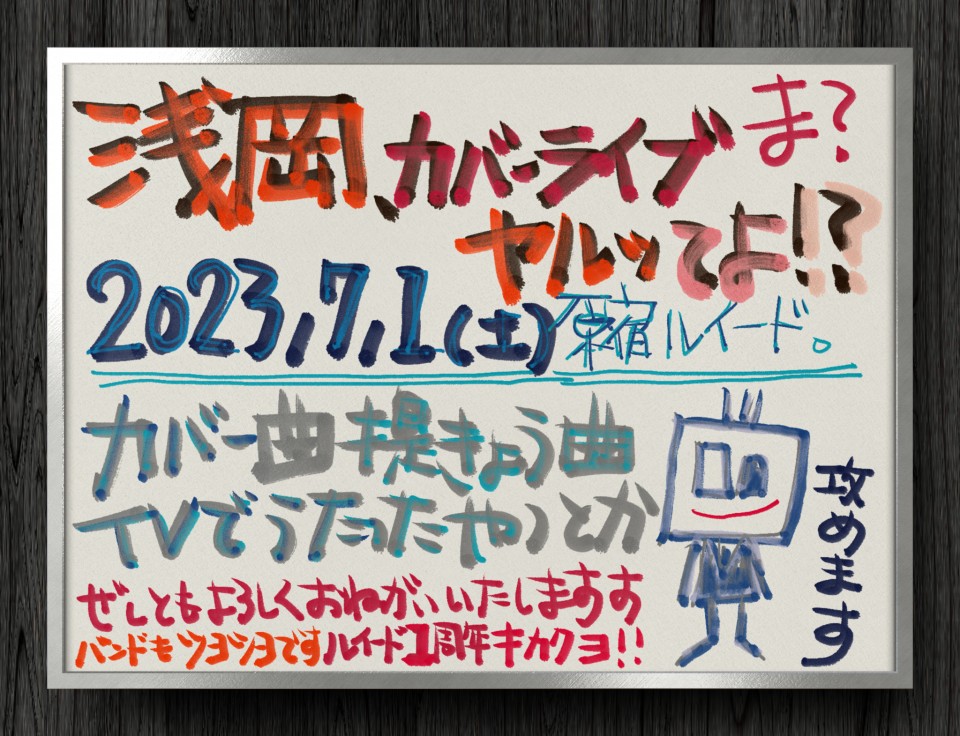 浅岡、カバーライブ ま?
ヤルッてよ!!?
2023,7,1(土)原宿ルイード。
カバー曲提きょう曲
TVでうたったやつとか
攻めます
ぜひともよろしくおねがいいたしますす
バンドもツヨツヨです ルイード1周年キカクヨ!!